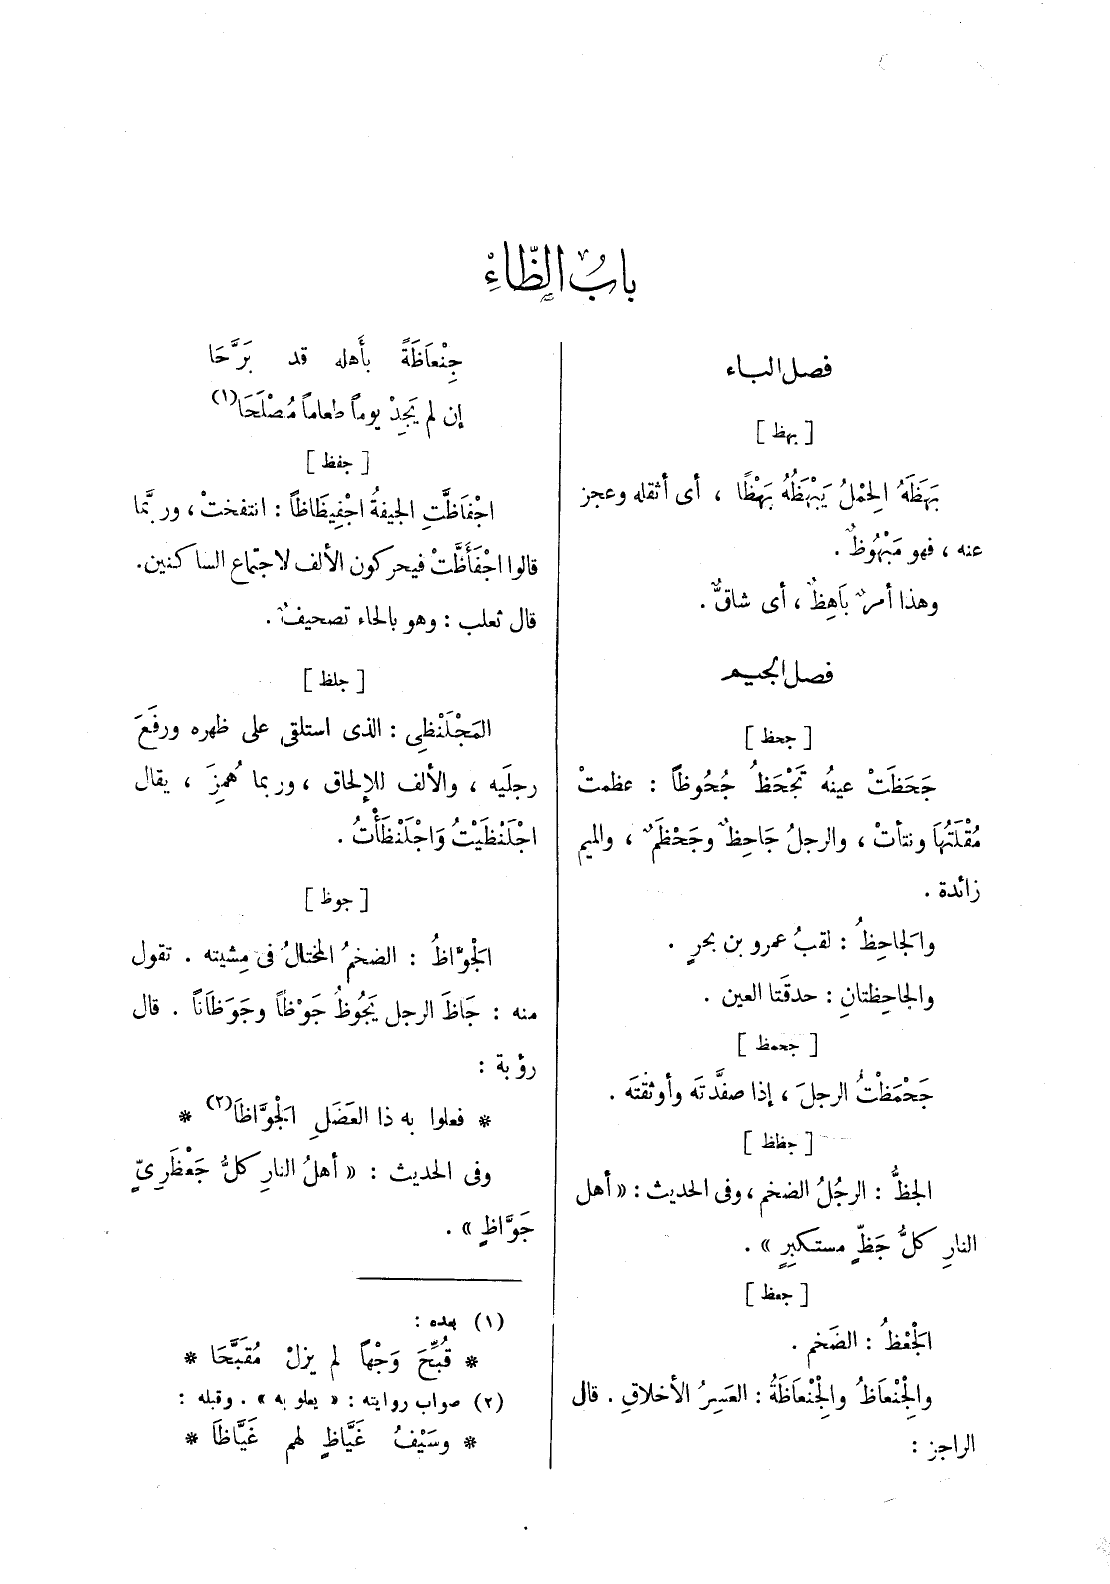 بابُ الظّاءِ
فصل الباء
[ بهظ ]
بَهَظَهُ الحِمْلُ يَبْهَظُهُ بَهْظًا ، أى أثقله وعجز
عنه ، فهو مَبْهُوظٌ .
وهذا أمرٌ بَاهِظٌ ، أى شاقٌّ .
فصل الجيم
[ جحظ ]
جَحَظَتْ عينُه تَجْحَظُ جُحُوظاً : عظمتْ
مُقْلَتُهَا ونتأتْ ، والرجلُ جَاحِظٌ وجَحْظَمٌ ، والميم
زائدة .
والجاحِظُ : لقبُ عمرو بن بحرٍ .
والجاحِظتانِ : حدقَتا العين .
[ جحمظ ]
جَحْمَظْتُ الرجلَ ، إذا صفَّدتَه وأوثقتَه .
[ جظظ ]
الجظُّ : الرجُلُ الضخم ، وفى الحديث : « أهل
النارِ كلُّ جَظٍّ مستكبِرٍ » .
[ جعظ ]
الجْعْظُ : الضَخم .
والْجِنْعَاظُ والْجِنْعَاظَةُ : العَسِرُ الأخلاقِ . قال
الراجز :
جِنْعَاظَةٌ بأَهله قد بَرَّحَا
إن لم يَجِدْ يوماً طعاماً مُصْلَحَا(١)
[ جفظ ]
اجْفَاظَّتِ الجيفةُ اجْفِيظَاظاً : انتفخت ْ، وربَّما
قالوا اجْفَأَظَّتْ فيحركون الألف لاجتماع الساكنين.
قال ثعلب : وهو بالحاء تصحيفٌ .
[ جلظ ]
المَجْلَنْظِى : الذى استلقى على ظهره ورفَعَ
رجلَيه ، والألف للإلحاق ، وربما هُمِزَ ، يقال
اجْلَنْظَيْتُ وَاجْلَنْظَأْتُ .
[ جوظ ]
الْجوَّاظُ : الضخمُ المختالُ فى مِشيته . تقول
منه : جَاظَ الرجل يَجُوظُ جَوْظاً وجَوَظَاناً . قال
رؤبة :
* فعلوا به ذا العَضَلِ الْجوَّاظَا(٢) *
وفى الحديث : « أهلُ النارِ كلُّ جَعْظَرِىٍّ
جَوَّاظٍ » .
(١) بعده :
* قُبِّحَ وَجْهاً لم يزلْ مُقَبَّحَا *
(٢) صواب روايته : « يعلو به » . وقبله :
* وسَيْفُ غَيَّاظٍ لهم غَيَّاظَا *